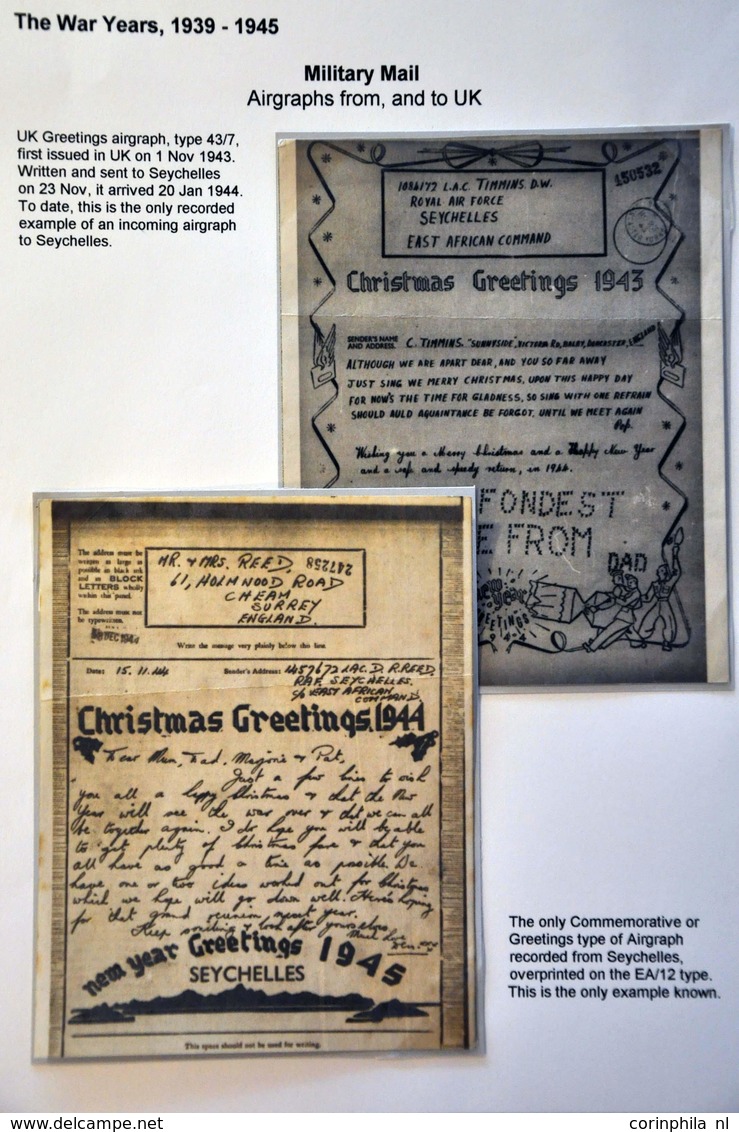 The War Years, 1939 - 1945
Military Mail
Airgraphs from, and to UK
UK Greetings airgraph, type 43/7,
first issued in UK on 1 Nov 1943.
Written and sent to Seychelles
on 23 Nov, it arrived 20 Jan 1944.
To date, this is the only recorded
example of an incoming airgraph
to Seychelles.
150532
1086172 L.A.C. TIMMINS. D.W.
ROYAL AIR FORCE
SEYCHELLES
EAST AFRICAN COMMAND
Christmas Greetings 1943
SENDER'S NAME
AND ADDRESS
C. TIMMINS. "SUNNYSIDE", VICTORIA RD, BALBY, DONCASTER, ENGLAND
ALTHOUGH WE ARE APART DEAR, AND YOU SO FAR AWAY
JUST SING WE MERRY CHRISTMAS, UPON THIS HAPPY DAY
FOR NOW'S THE TIME FOR GLADNESS, SO SING WITH ONE REFRAIN
SHOULD AULD AQUAINTANCE BE FORGOT, UNTIL WE MEET AGAIN
Pop.
Wishing you a Merry Christmas and a Happy New Year
and a safe and speedy return, in 1944.
FONDEST
E FROM
DAD
New Year
GREETINGS
1944
The address must be
written as large as
possible in black ink
and in BLOCK
LETTERS wholly
within this panel.
The address must not
be typewritten.
DEC 1944
MR. & MRS. REED,
247258
61, HOLMWOOD ROAD
CHEAM
SURREY
ENGLAND.
Write the message very plainly below this line.
Date: 15.11.44
Sender's Address: 1457672 LAC. D. R. REED.
RAF SEYCHELLES.
C/o EAST AFRICAN
COMMAND
Christmas Greetings, 1944
Dear Mum, Dad, Marjorie & Pat,
Just a few lines to wish
you all a happy Christmas & that the New
Year will see the war over & that we can all
be together again. I do hope you will be able
to get plenty of Christmas fare & that you
all have as good a time as possible. We
have one or two ideas worked out for Christmas
which we hope will go down well. Here's hoping
for that grand reunion next year.
Keep smiling & look after yourselves,
Much love
new year Greetings 1945
SEYCHELLES
This space should not be used for writing.
The only Commemorative or
Greetings type of Airgraph
recorded from Seychelles,
overprinted on the EA/12 type.
This is the only example known.
www.delcampe.net
corinphila nl